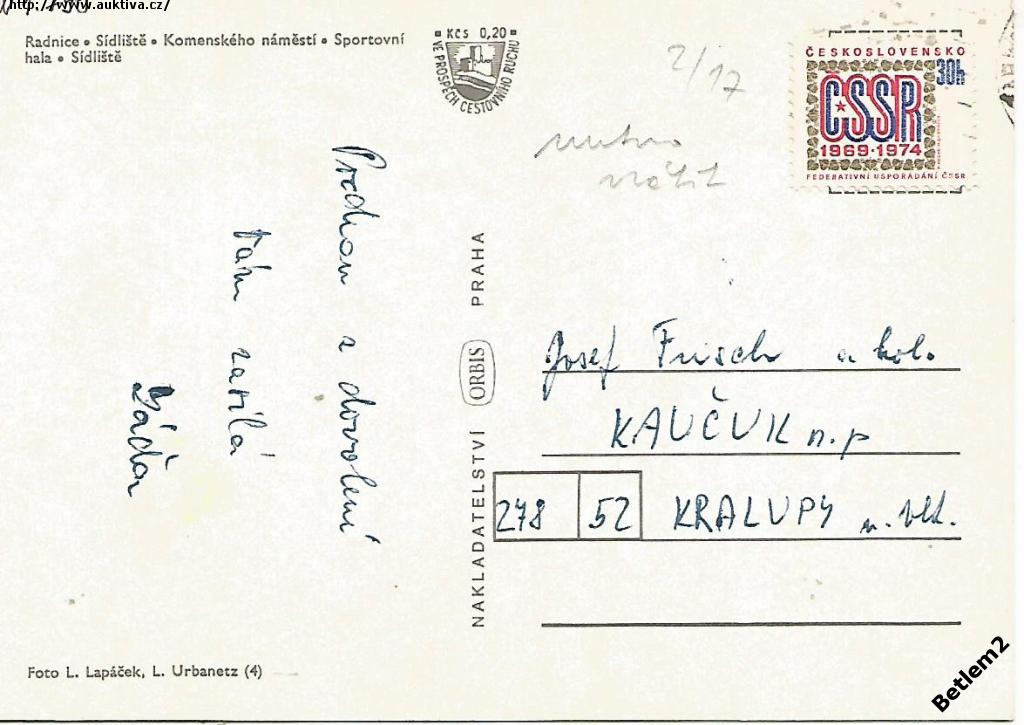 http://www.auktiva.cz/
Radnice • Sídliště • Komenského náměstí • Sportovní
hala • Sídliště
Kčs 0,20
VE PROSPĚCH CESTOVNÍHO RUCHU
2/17
ČESKOSLOVENSKO
30h
ČSSR
1969·1974
FEDERATIVNÍ USPOŘÁDÁNÍ ČSSR
nutno
vrátit
z dovolení
Vám zasílá
NAKLADATELSTVÍ ORBIS PRAHA
Josef Frisch a kol.
KAUČUK n.p
278 52 KRALUPY n. vlt.
Foto L. Lapáček, L. Urbanetz (4)
Betlem2